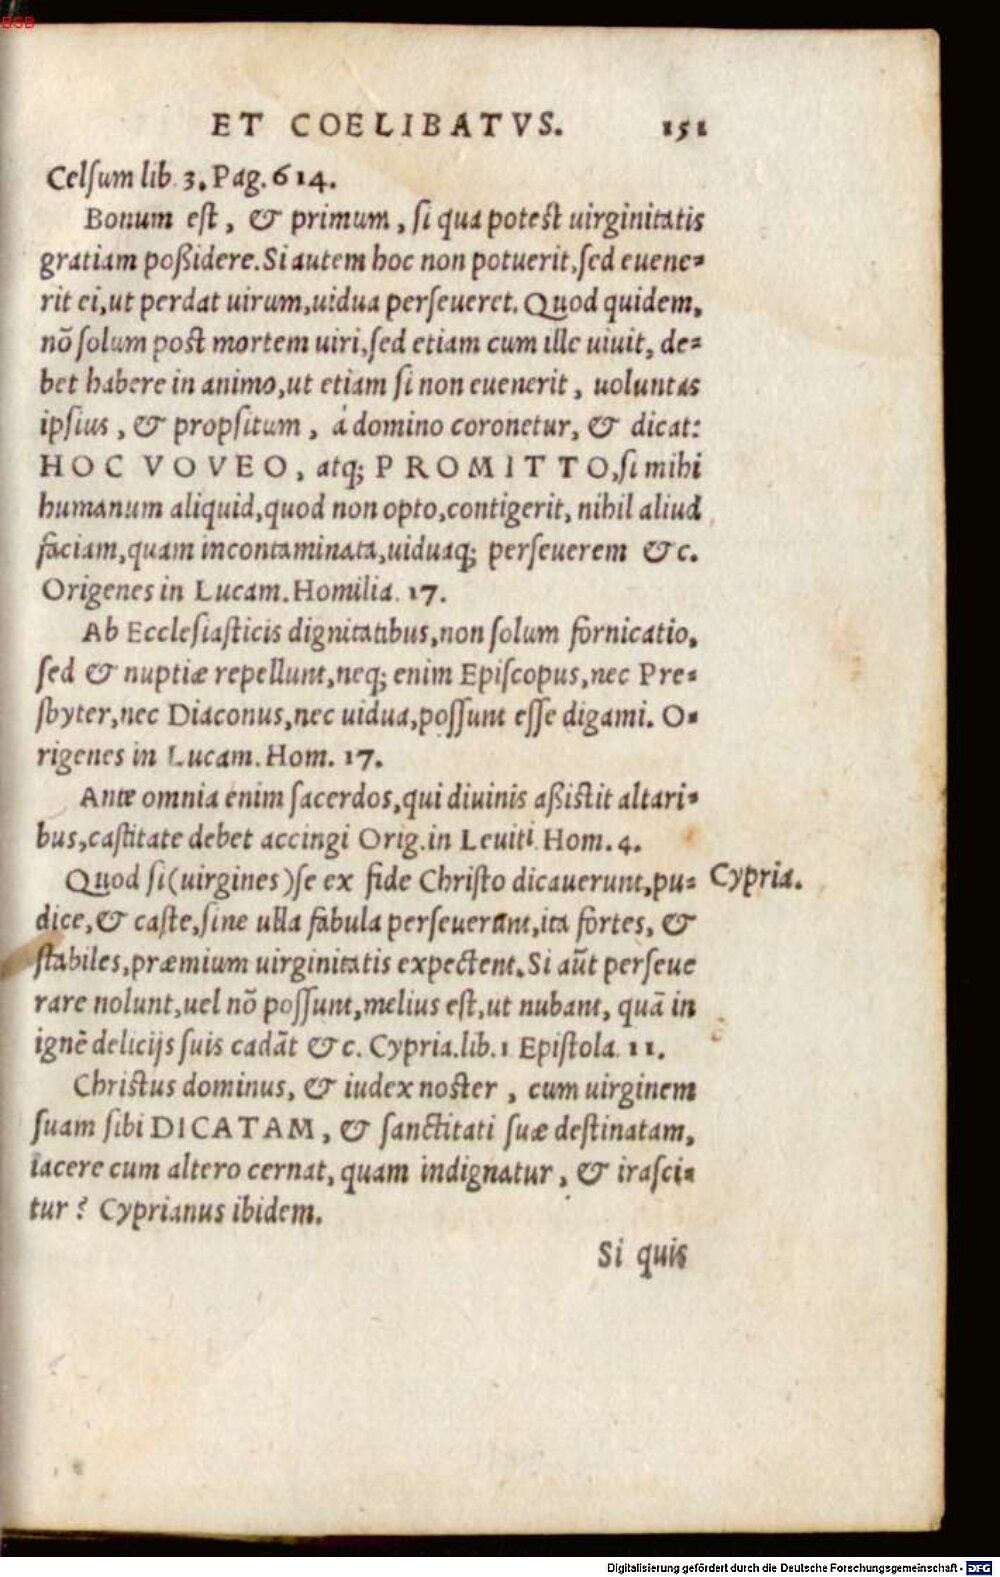 BSB
ET COELIBATVS. 151
Celſum lib. 3. Pag. 614.
Bonum eſt, & primum, ſi qua poteſt uirginitatis
gratiam poßidere. Si autem hoc non potuerit, ſed euene=
rit ei, ut perdat uirum, uidua perſeueret. Quod quidem,
nō ſolum poſt mortem uiri, ſed etiam cum ille uiuit, de=
bet habere in animo, ut etiam ſi non euenerit, uoluntas
ipſius, & propſitum, á domino coronetur, & dicat:
HOC VOVEO, atq; PROMITTO, ſi mihi
humanum aliquid, quod non opto, contigerit, nihil aliud
faciam, quam incontaminata, uiduaq; perſeuerem &c.
Origenes in Lucam. Homilia. 17.
Ab Eccleſiaſticis dignitatibus, non ſolum fornicatio,
ſed & nuptiæ repellunt, neq; enim Epiſcopus, nec Pre=
ſbyter, nec Diaconus, nec uidua, poſſunt eſſe digami. O=
rigenes in Lucam. Hom. 17.
Ante omnia enim ſacerdos, qui diuinis aßiſtit altari=
bus, caſtitate debet accingi Orig. in Leuiti. Hom. 4.
Quod ſi (uirgines) ſe ex fide Chriſto dicauerunt, pu= Cypria.
dice, & caſte, ſine ulla fabula perſeuerant, ita fortes, &
ſtabiles, præmium uirginitatis expectent. Si aūt perſeue
rare nolunt, uel nō poſſunt, melius eſt, ut nubant, quā in
ignē delicijs ſuis cadāt &c. Cypria. lib. 1 Epiſtola. 11.
Chriſtus dominus, & iudex noſter, cum uirginem
ſuam ſibi DICATAM, & ſanctitati ſuæ deſtinatam,
iacere cum altero cernat, quam indignatur, & iraſci=
tur? Cyprianus ibidem.
Si quis
Digitalisierung gefördert durch die Deutsche Forschungsgemeinschaft - DFG